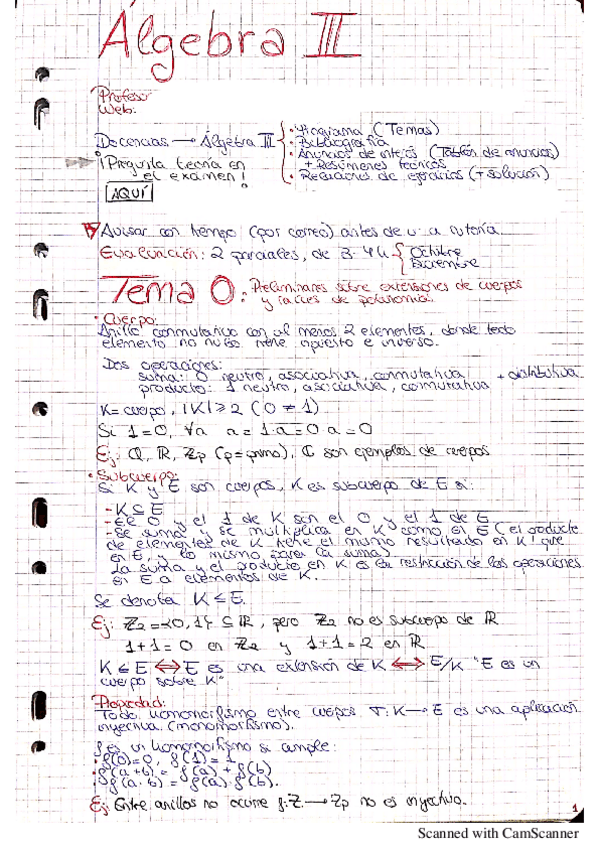 Álgebra III
Profesor
Web:
Docencias → Álgebra III
• Programa (Temas)
• Bibliografía
• Anuncios de interés (Tablón de anuncios)
+ Resúmenes teóricos
• Relaciones de ejercicios (+ solución)
¡Pregunta teoría en
el examen!
AQUÍ
Avisar con tiempo (por correo) antes de ir a tutoría
Evaluación: 2 parciales, de 3-4h
Octubre
Diciembre
Tema 0: Preliminares sobre extensiones de cuerpos
y raíces de polinomios.
• Cuerpo:
Anillo conmutativo con al menos 2 elementos, donde todo
elemento no nulo tiene opuesto e inverso.
Dos operaciones:
suma: 0 neutro, asociativa, conmutativa + distributiva.
producto: 1 neutro, asociativa, conmutativa
K = cuerpo, |K| ≥ 2 (0 ≠ 1)
Si 1=0, ∀a a = 1·a = 0·a = 0
Ej: Q, R, Zp (p=primo), C son ejemplos de cuerpos
• Subcuerpo:
Si K y E son cuerpos, K es subcuerpo de E si:
- K ⊆ E
- El 0 y el 1 de K son el 0 y el 1 de E
- Se suma y se multiplica en K como en E (el producto
de elementos de K tiene el mismo resultado en K que
en E, y lo mismo para la suma)
La suma y el producto en K es la restricción de las operaciones
en E a elementos de K.
Se denota K ≤ E.
Ej: Z2 = {0,1} ⊆ R, pero Z2 no es subcuerpo de R
1+1=0 en Z2 y 1+1=2 en R
K ≤ E ⟺ E es una extensión de K ⟺ E/K "E es un
cuerpo sobre K"
Propiedad:
Todo homomorfismo entre cuerpos σ: K → E es una aplicación
inyectiva (monomorfismo).
f es un homomorfismo si cumple:
• f(0)=0, f(1)=1
• f(a+b) = f(a) + f(b)
• f(a·b) = f(a)·f(b).
Ej: Entre anillos no ocurre f: Z → Zp no es inyectivo.
1
Scanned with CamScanner